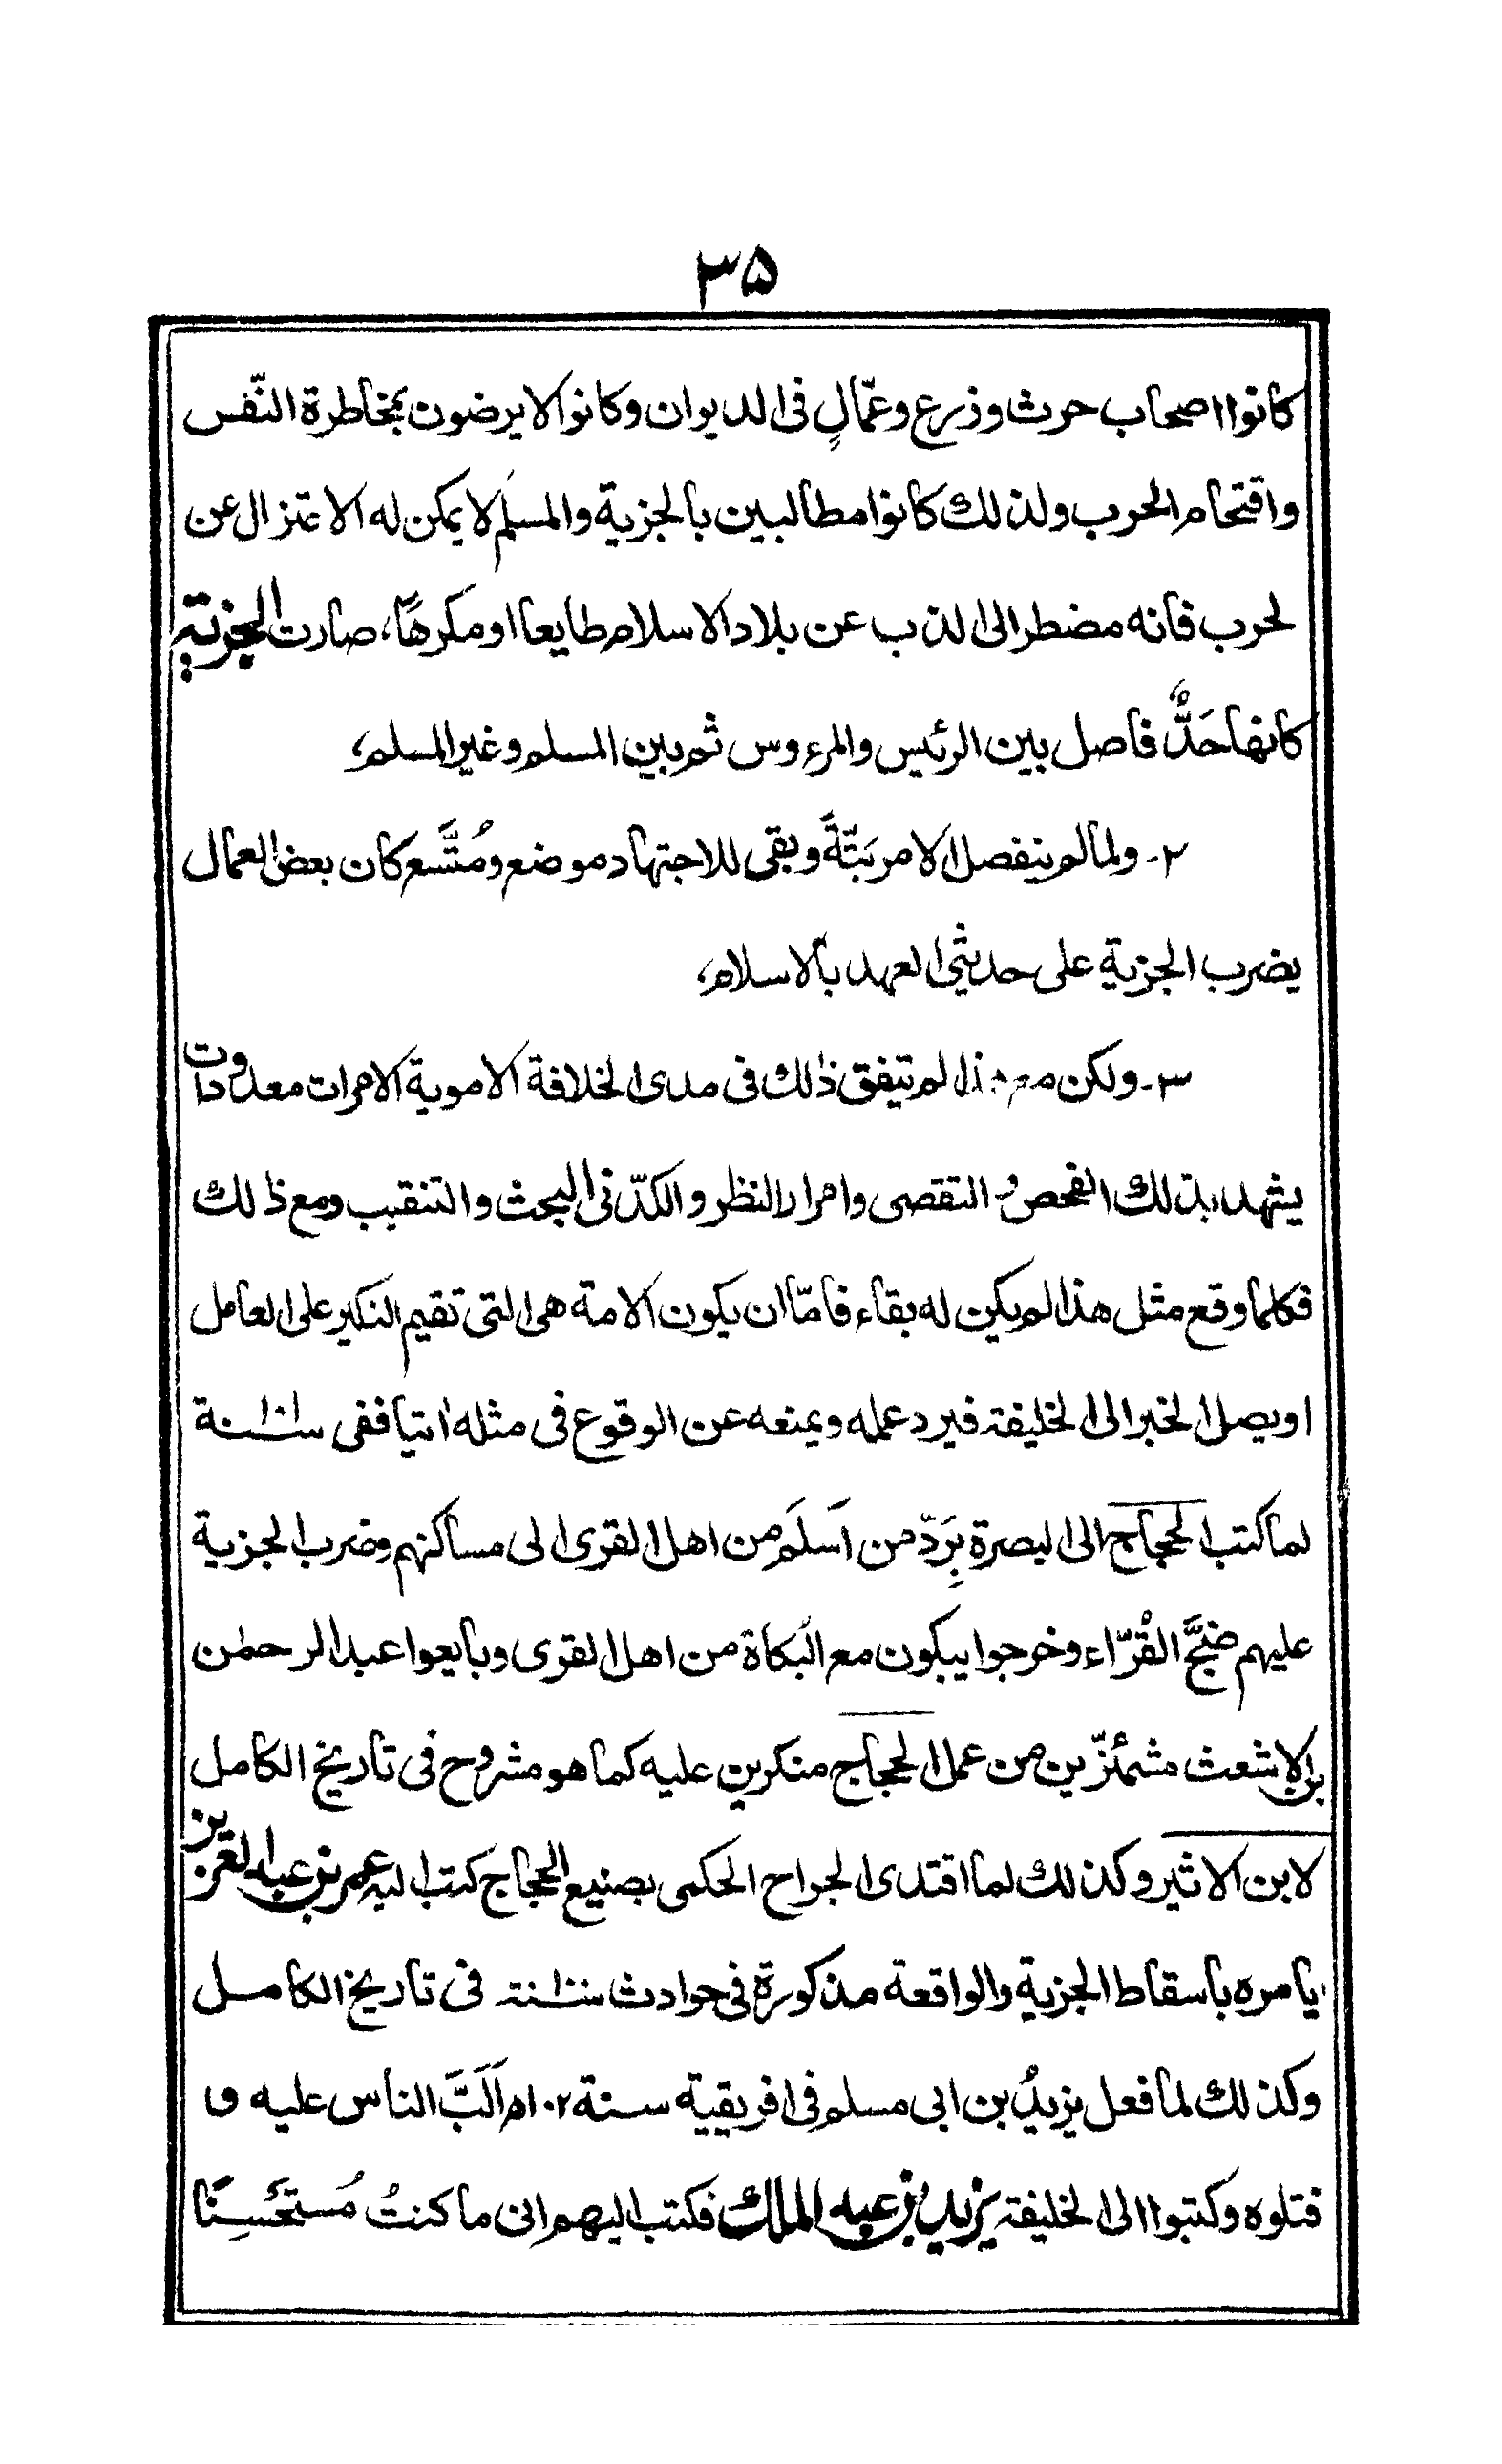 ۳۵
كانوا اصحاب حرث وزرع وعمّالٍ فى الديوان وكانوا لا يرضون بمخاطرة النّفس
واقتحام الحرب ولذلك كانوا مطالبين بالجزية والمسلم لا يمكن له الاعتزال عن
لحرب فانه مضطر الى الذب عن بلاد الاسلام طايعا او مكرهًا، صارت الجزية
كانها حَدٌّ فاصل بين الرئيس والمرءوس ثم بين المسلم وغير المسلم،
۲- ولما لم ينفصل الامر بَتّةً وبقى للاجتهاد موضع ومُتَّسع كان بعض العمال
يضرب الجزية على حديثى العهد بالاسلام،
۳- ولكن مع هذا لم يتفق ذٰلك فى مدى الخلافة الاموية الا مرات معدودات
يشهد بذلك الفحص و التقصى وامرار النظر والكدّ فى البحث والتنقيب ومع ذٰلك
فكلما وقع مثل هذا لم يكن له بقاء فامّا ان يكون الامة هى التى تقيم النكير على العامل
او يصل الخبر الى الخليفة فيرد عمله ويمنعه عن الوقوع فى مثله اٰتيا ففى سنة
لما كتب الحجاج الى البصرة بِرَدّ من اَسلَم من اهل القرى الى مساكنهم وضرب الجزية
عليهم ضجَّ القُرّاء وخرجوا يبكون مع البُكاة من اهل القرى وبايعوا عبد الرحمٰن
بن الاشعث مشمئزّين من عمل الحجاج منكرين عليه كما هو مشروح فى تاريخ الكامل
لابن الاثير وكذلك لما اقتدى الجراح الحكمى بصنيع الحجاج كتب اليه عمر بن عبد العزيز
يامره باسقاط الجزية والواقعة مذكورة فى حوادث سنة فى تاريخ الكامل
وكذلك لما فعل يزيدُ بن ابى مسلم فى افريقية سنة ۱۰۲م اَلَبَّ الناس عليه و
قتلوه وكتبوا الى الخليفة يزيد بن عبد الملك فكتب اليهم انى ما كنتُ مُستحسِنًا